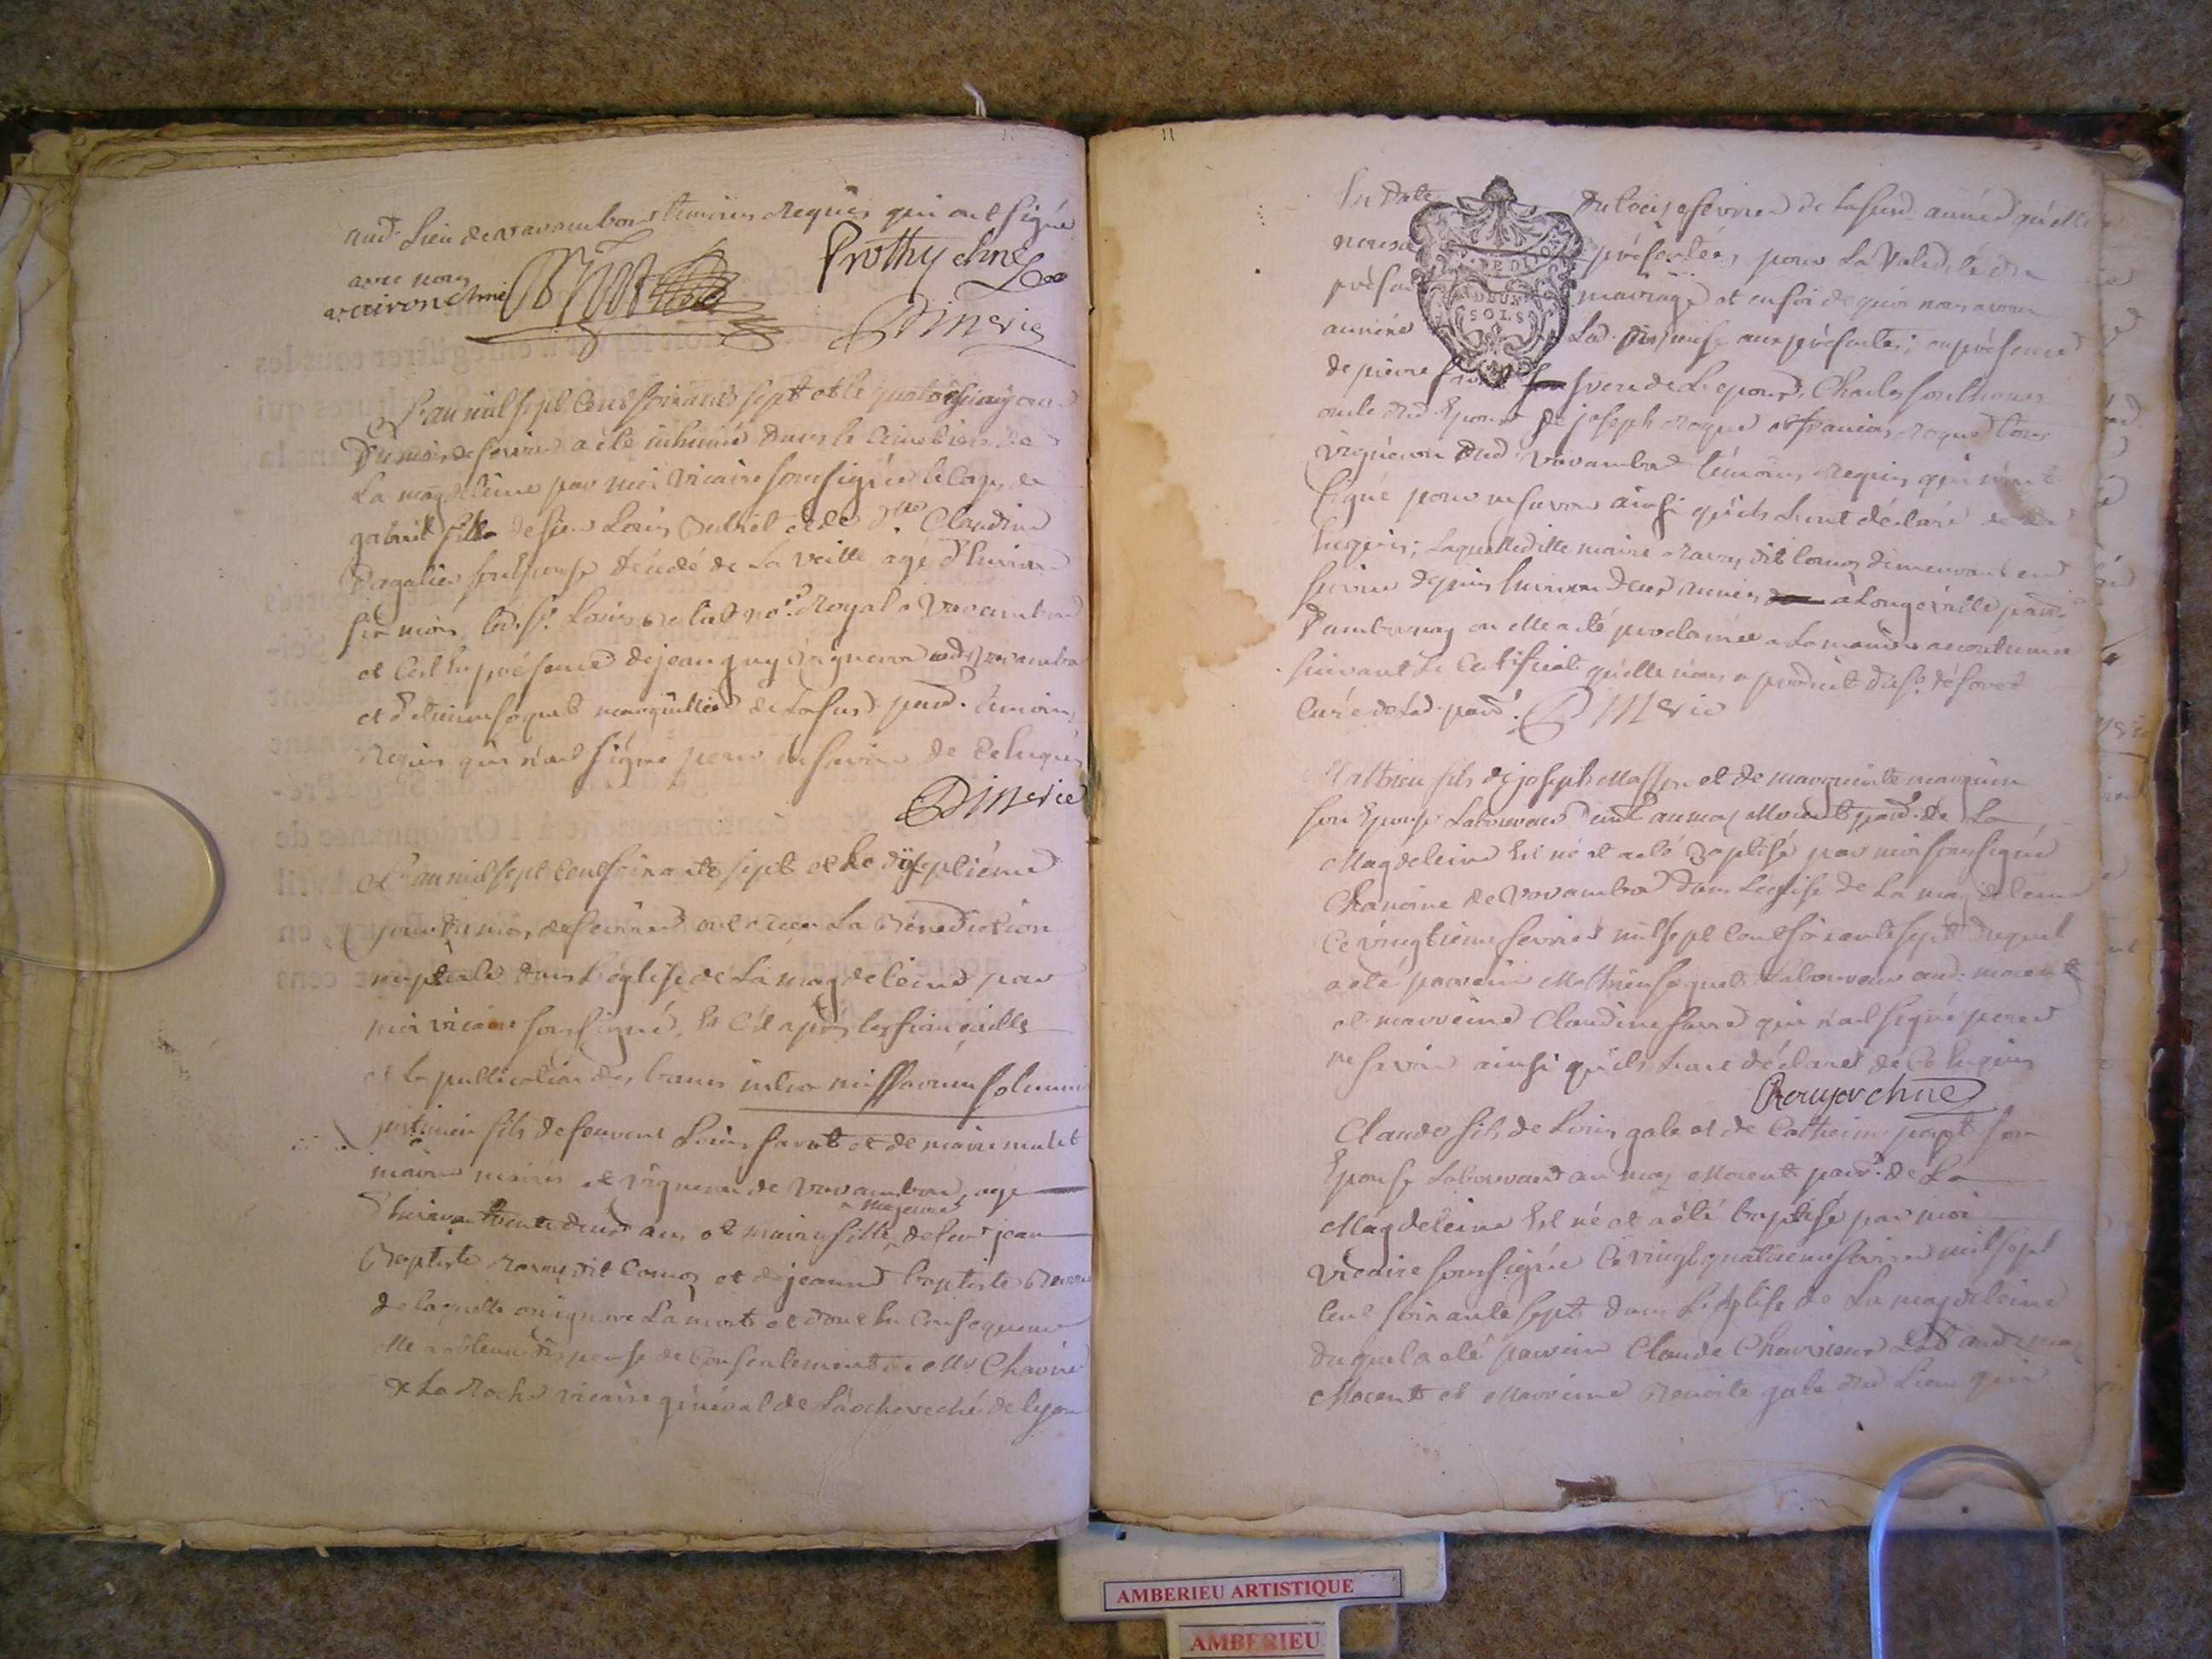 aud. Lieu de varambon temoins Requis qui ont signé
avec nous
verron chne
Prothy chne
Dimerie
L'an mil sept Cent soixante sept et le quatorzième jour
Du mois de fevrier a été inhumé dans le Cimetiere de
La magdeleine par moi vicaire soussigné le Corps de
gabriel fils de sieur Louis et de Dlle Claudine
son Epouse décédé de La veille agé d'Environ
six mois, led. sr. Louis No.re Royal a Varambon
et C'est En présence de jean guy vigneron aud. Varambon
et d'etienne foquet marguillier de Lasusd. paroi. temoins
Requis qui n'ont signé pour ne savoir de Ce Enquis
Dimerie
L'an mil sept Cent soixante sept et Le dix septiéme
jour du mois de fevrier ont Reçu La Bénédiction
nuptiale dans L'eglise de La magdeleine par
moi vicaire soussigné, Et C'est après les fiancailles
et la publication des bancs intra missarum solemnia
fils de feu Louis favot et de marie mulet
mariés et vigneron de Varambon, agé
D'Environ trente deux ans et marie fille majeure de feu jean
Baptiste Ravy dit Comoz et de jeanne baptiste
de laquelle on ignore La mort et dont En Consequence
elle a obtenu dispense de Consentement de Mr. Charrier
de La Roche vicaire général de L'archeveché de lyon
En Date du seize fevrier de Lasusd. année qu'elle
nous a présentée, pour La Validité du
présent mariage et en foi de quoi nous avons
annéxé Lad. Dispense aux présentes; en présence
de pierre favot frere de L'epoux, Charles fonthonas
oncle dud. Epoux de joseph Roque et françois Roque tous
vigneron dud. Varambon témoins Requis qui n'ont
signé pour ne savoir ainsi qu'ils L'ont déclaré de Ce
Enquis; Laquelle ditte marie Ravy dit Comoz demeurant en
service depuis Environ deux années a Longeville paroi.
D'ambronay ou elle a été proclamée a La maniere accoutumée
suivant Le Certificat qu'elle nous a produit du sr. déforet
Curé de Lad. paroi. Dimerie
Mathieu fils de joseph Masson et de marguerite manguin
son Epouse Laboureur aud. au mas Morent paroi. de La
Magdeleine Est né et a été Baptisé par moi soussigné
Chanoine de Varambon dans L'eglise de La magdeleine
Ce vingtieme fevrier mil sept Cent soixante sept duquel
a été parrein Mathieu foquet Laboureur aud. morent
et marreine Claudine favre qui n'ont signé pour
ne savoir ainsi qu'ils L'ont déclaré de Ce Enquis
Roujox chne
Claude fils de Louis gale et de Catherine papt son
Epouse Laboureur au mas Morent paroi. de La
Magdeleine Est né et a été baptisé par moi
vicaire soussigné Ce vingt quatrieme fevrier mil sept
Cent soixante sept dans L'eglise de La magdeleine
duquel a été parrein Claude Lab. aud. mas
Morent et Marreine Benoite gale dud. Lieu qui
DEUX
SOLS
AMBERIEU ARTISTIQUE
AMBERIEU